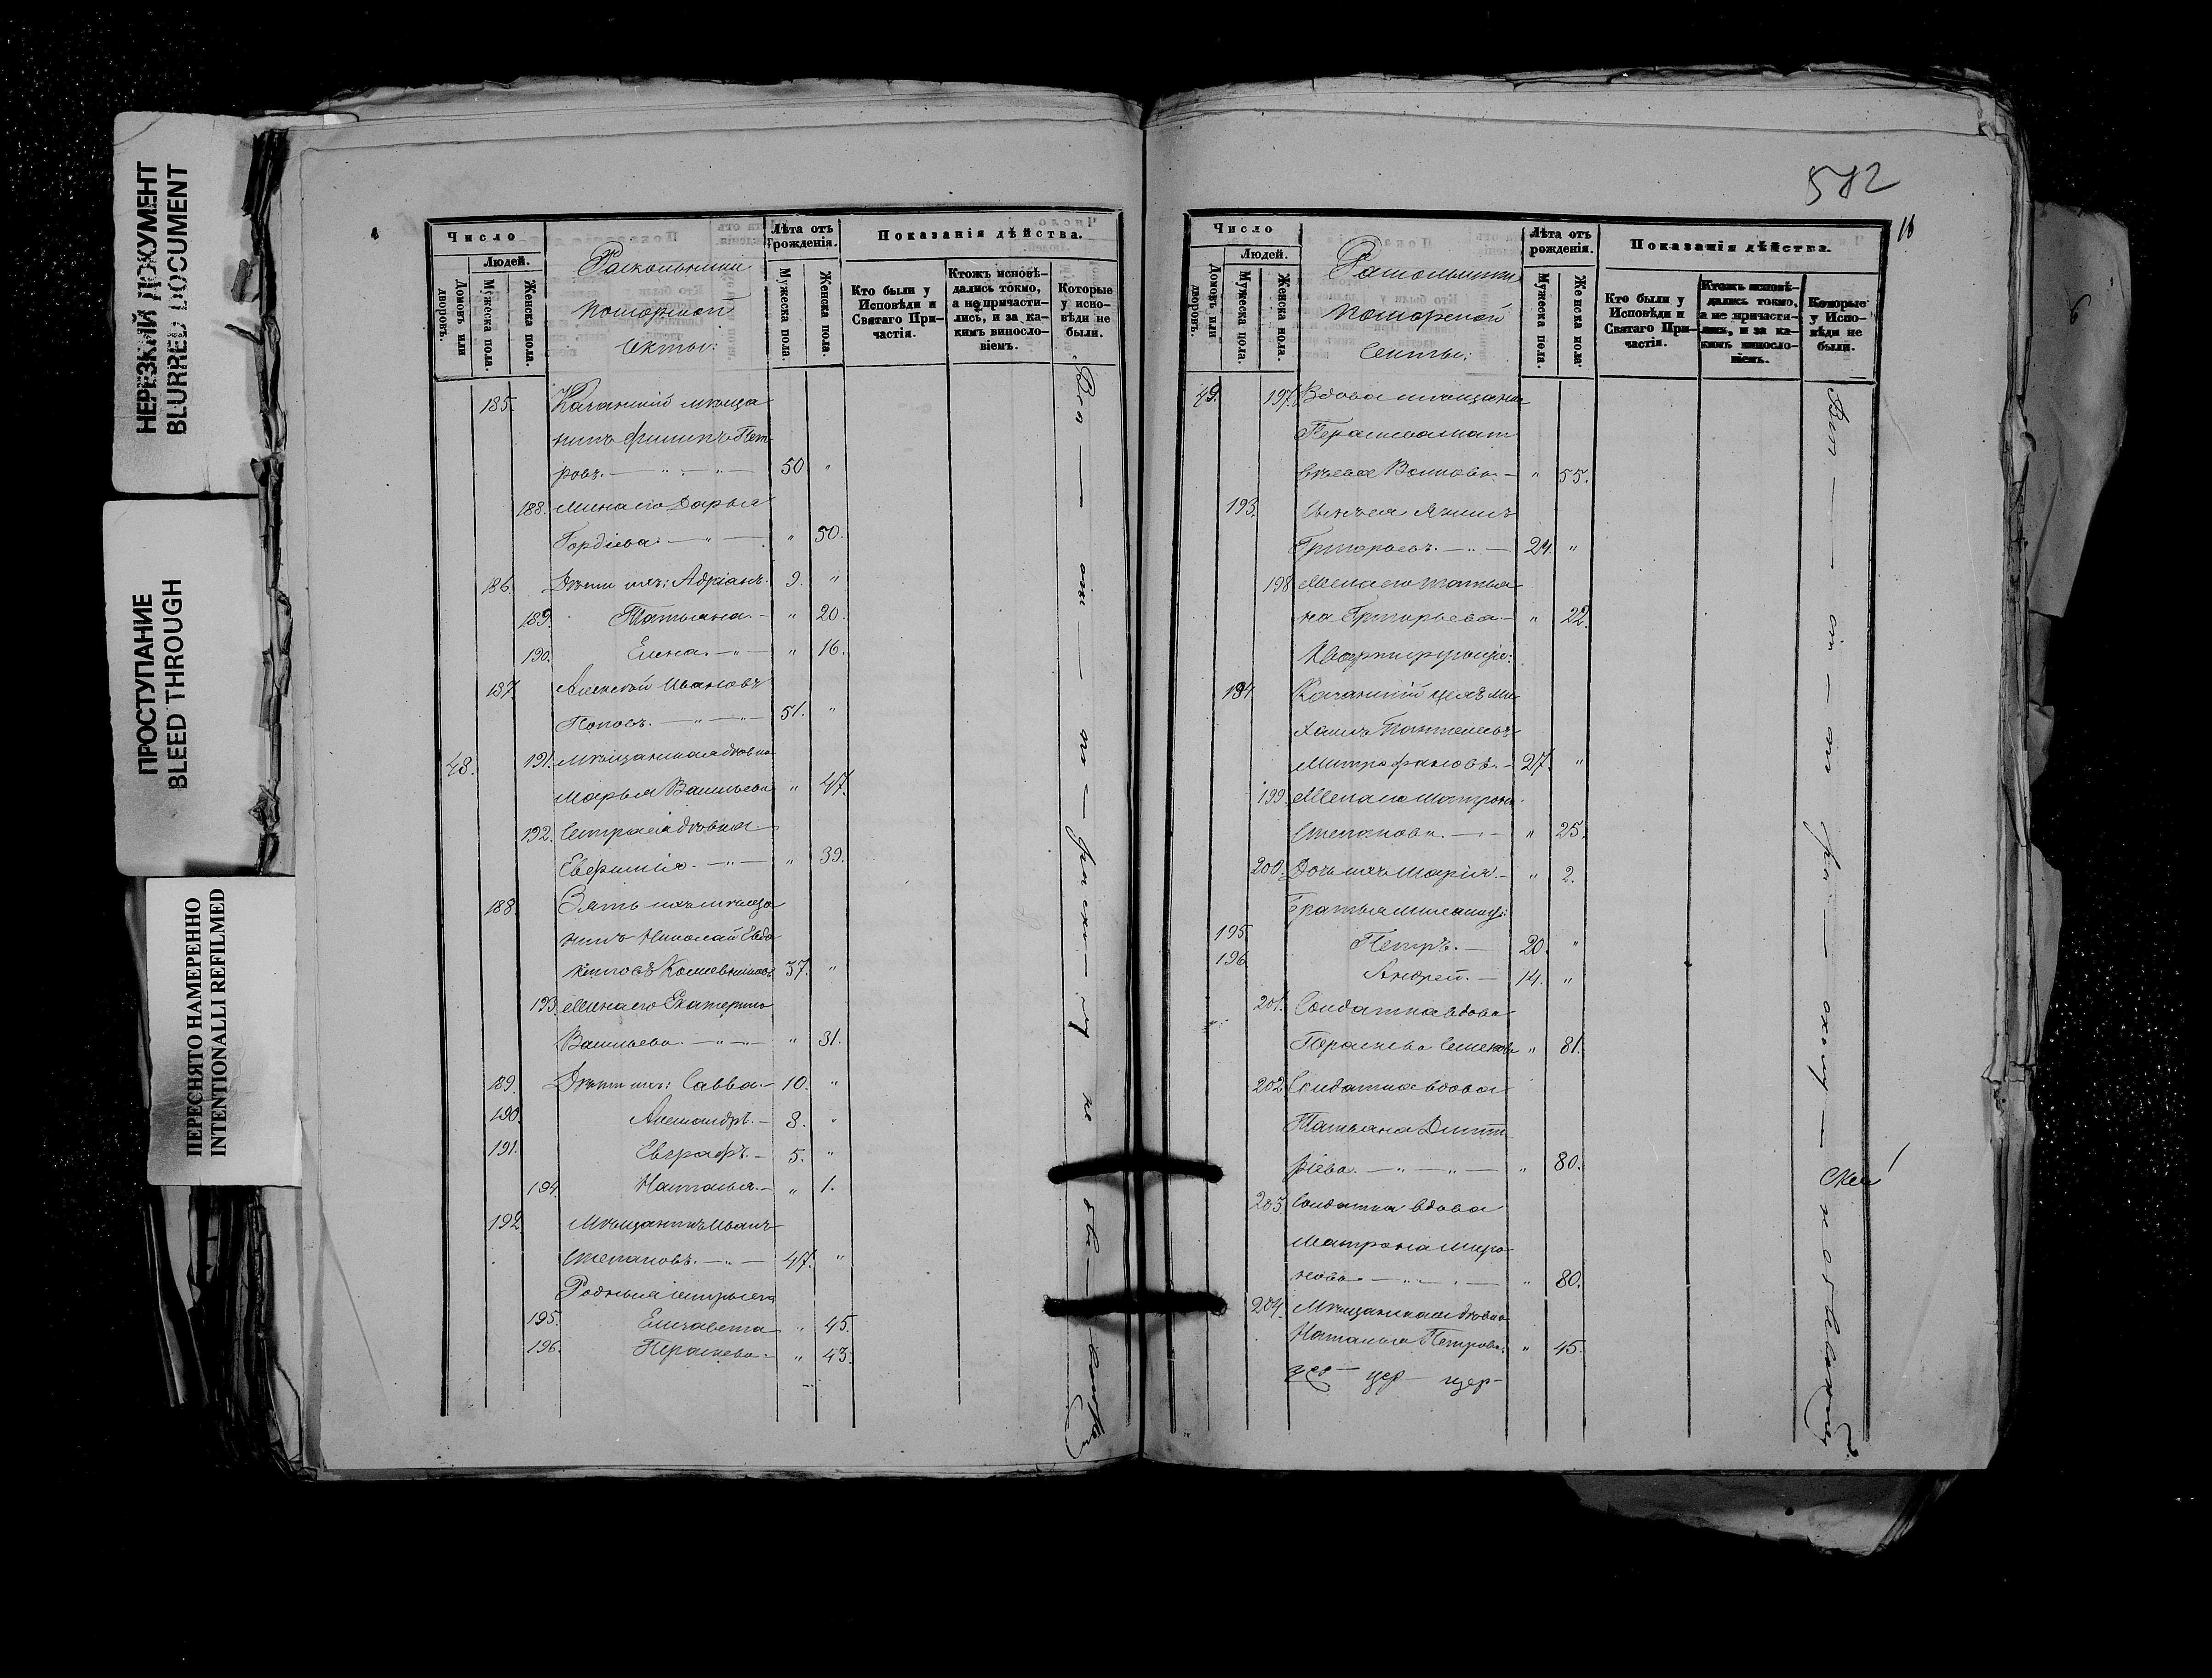 НЕРЕЗКИЙ ДОКУМЕНТ
BLURRED DOCUMENT
ПРОСТУПАНИЕ
BLEED THROUGH
ПЕРЕСНЯТО НАМЕРЕННО
INTENTIONALLI REFILMED
Число
Людей.
Домовъ или дворовъ.
Мужеска пола.
Женска пола.
Раскольники
поморской
секты:
Лѣта отъ рожденія.
Мужеска пола.
Женска пола.
Показанія дѣйства.
Кто были у Исповѣди и Святаго Причастія.
Ктожъ исповѣдались токмо, а не причастились, и за какимъ винословіемъ.
Которые у исповѣди не были.
185. Казанский мѣща
нинъ Филипъ Пет
ровъ. — " — " — 50 "
188. Жена его Дарья
Гордіева. — " — " 50.
186. Дѣти ихъ: Адріанъ. 9. "
189. Татьяна. — " 20.
190. Елена. — " — " 16.
187 Алексѣй Ивановъ
Поповъ. — " — " — 51. "
48. 191. Мѣщанская дѣвка
Марья Васильева " 47.
192. Сестра ея дѣвка
Евфимія. — " — " 39.
188. Зять ихъ мѣща
нинъ Николай Евдо
кимовъ 37. "
193. Жена его Екатерина
Васильева. — " — " 31.
189. Дѣти ихъ: Савва. — 10. "
190. Александръ. — 8. "
191. Евграфъ. — 5. "
194. Наталья. — " 1.
192. Мѣщанинъ Иванъ
Степановъ. — " — 47. "
Родныя сестры его
195. Елизавета " 45.
196. Парасковья. — " 43.
582
Число
Людей.
Домовъ или дворовъ.
Мужеска пола.
Женска пола.
Раскольники
поморской
секты:
Лѣта отъ рожденія.
Мужеска пола.
Женска пола.
Показанія дѣйства.
Кто были у Исповѣди и Святаго Причастія.
Ктожъ исповѣдались токмо, а не причастились, и за какимъ винословіемъ.
Которые у Исповѣди не были.
49. 197. Вдова мѣщанка
Параскева Мат
вѣева Волкова. — " 55.
193. Сынъ ея Якимъ
Григорьевъ. — " — 24. "
198 Жена его Татья
на Григорьева. — " 22.
Квартирующіе:
194. Казанскій цех. Ми
хаилъ Пантелеевъ
Митрофановъ. — 27. "
199. Жена его Матрона
Степанова. — " — " 25.
200. Дочь ихъ Марія. — " 2.
Братья Михаилу:
195 Петръ. — 20. "
196 Андрей. — 14. "
201. Солдатка вдова
Параскева Семенова " 81.
202. Солдатка вдова
Татьяна Дмит
ріева. — " — " — " 80.
203 Солдатка вдова
Матрона Миро
нова. — " — " 80.
204. Мѣщанская дѣвка
Наталья Петрова. " 45.